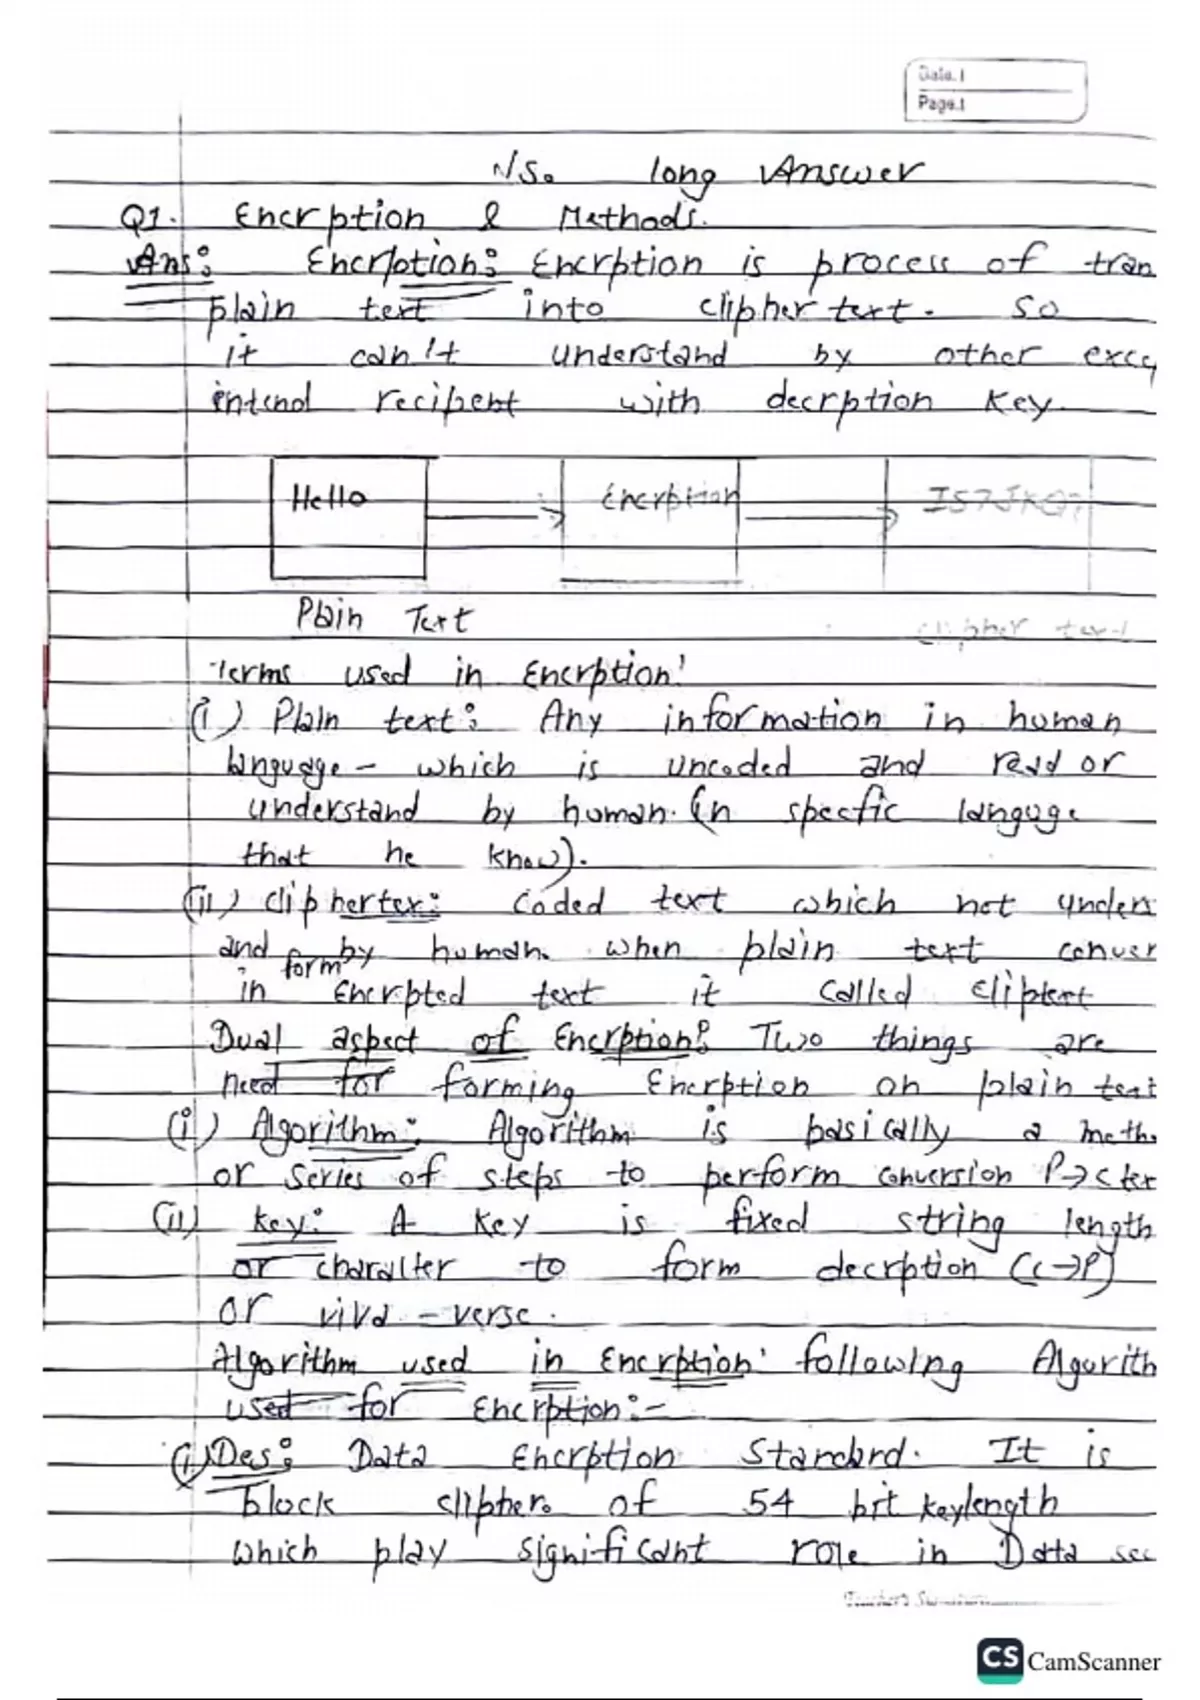 Date.1
Page.1
N/S. long Answer
Q1. Encrption & Methods.
Ans: Encrption: Encrption is process of tran
plain text into clipher text. So
it can't understand by other exce
intend recipent with decrption Key.
Hello Encrption
Plain Text clipher text
Terms used in Encrption:
(i) Plain text: Any information in human
language - which is uncoded and read or
understand by human. (In specfic languge
that he know).
(ii) cliphertex: Coded text which not unders
and by human. when plain text conver
form
in Encrpted text it called cliptext
Dual aspect of Encrption: Two things are
need for forming Encrption on plain text
(i) Algorithm: Algorithm is basically a metho
or series of steps to perform conversion P→c tex
(ii) Key: A Key is fixed string length
or charalter to form decrption (c→P)
or viva-verse.
Algorithm used in Encrption: following Algorith
used for Encrption:-
(i) Des: Data Encrption Standard. It is
block clipher. of 54 bit keylength
which play significant role in Data sec
CS CamScanner